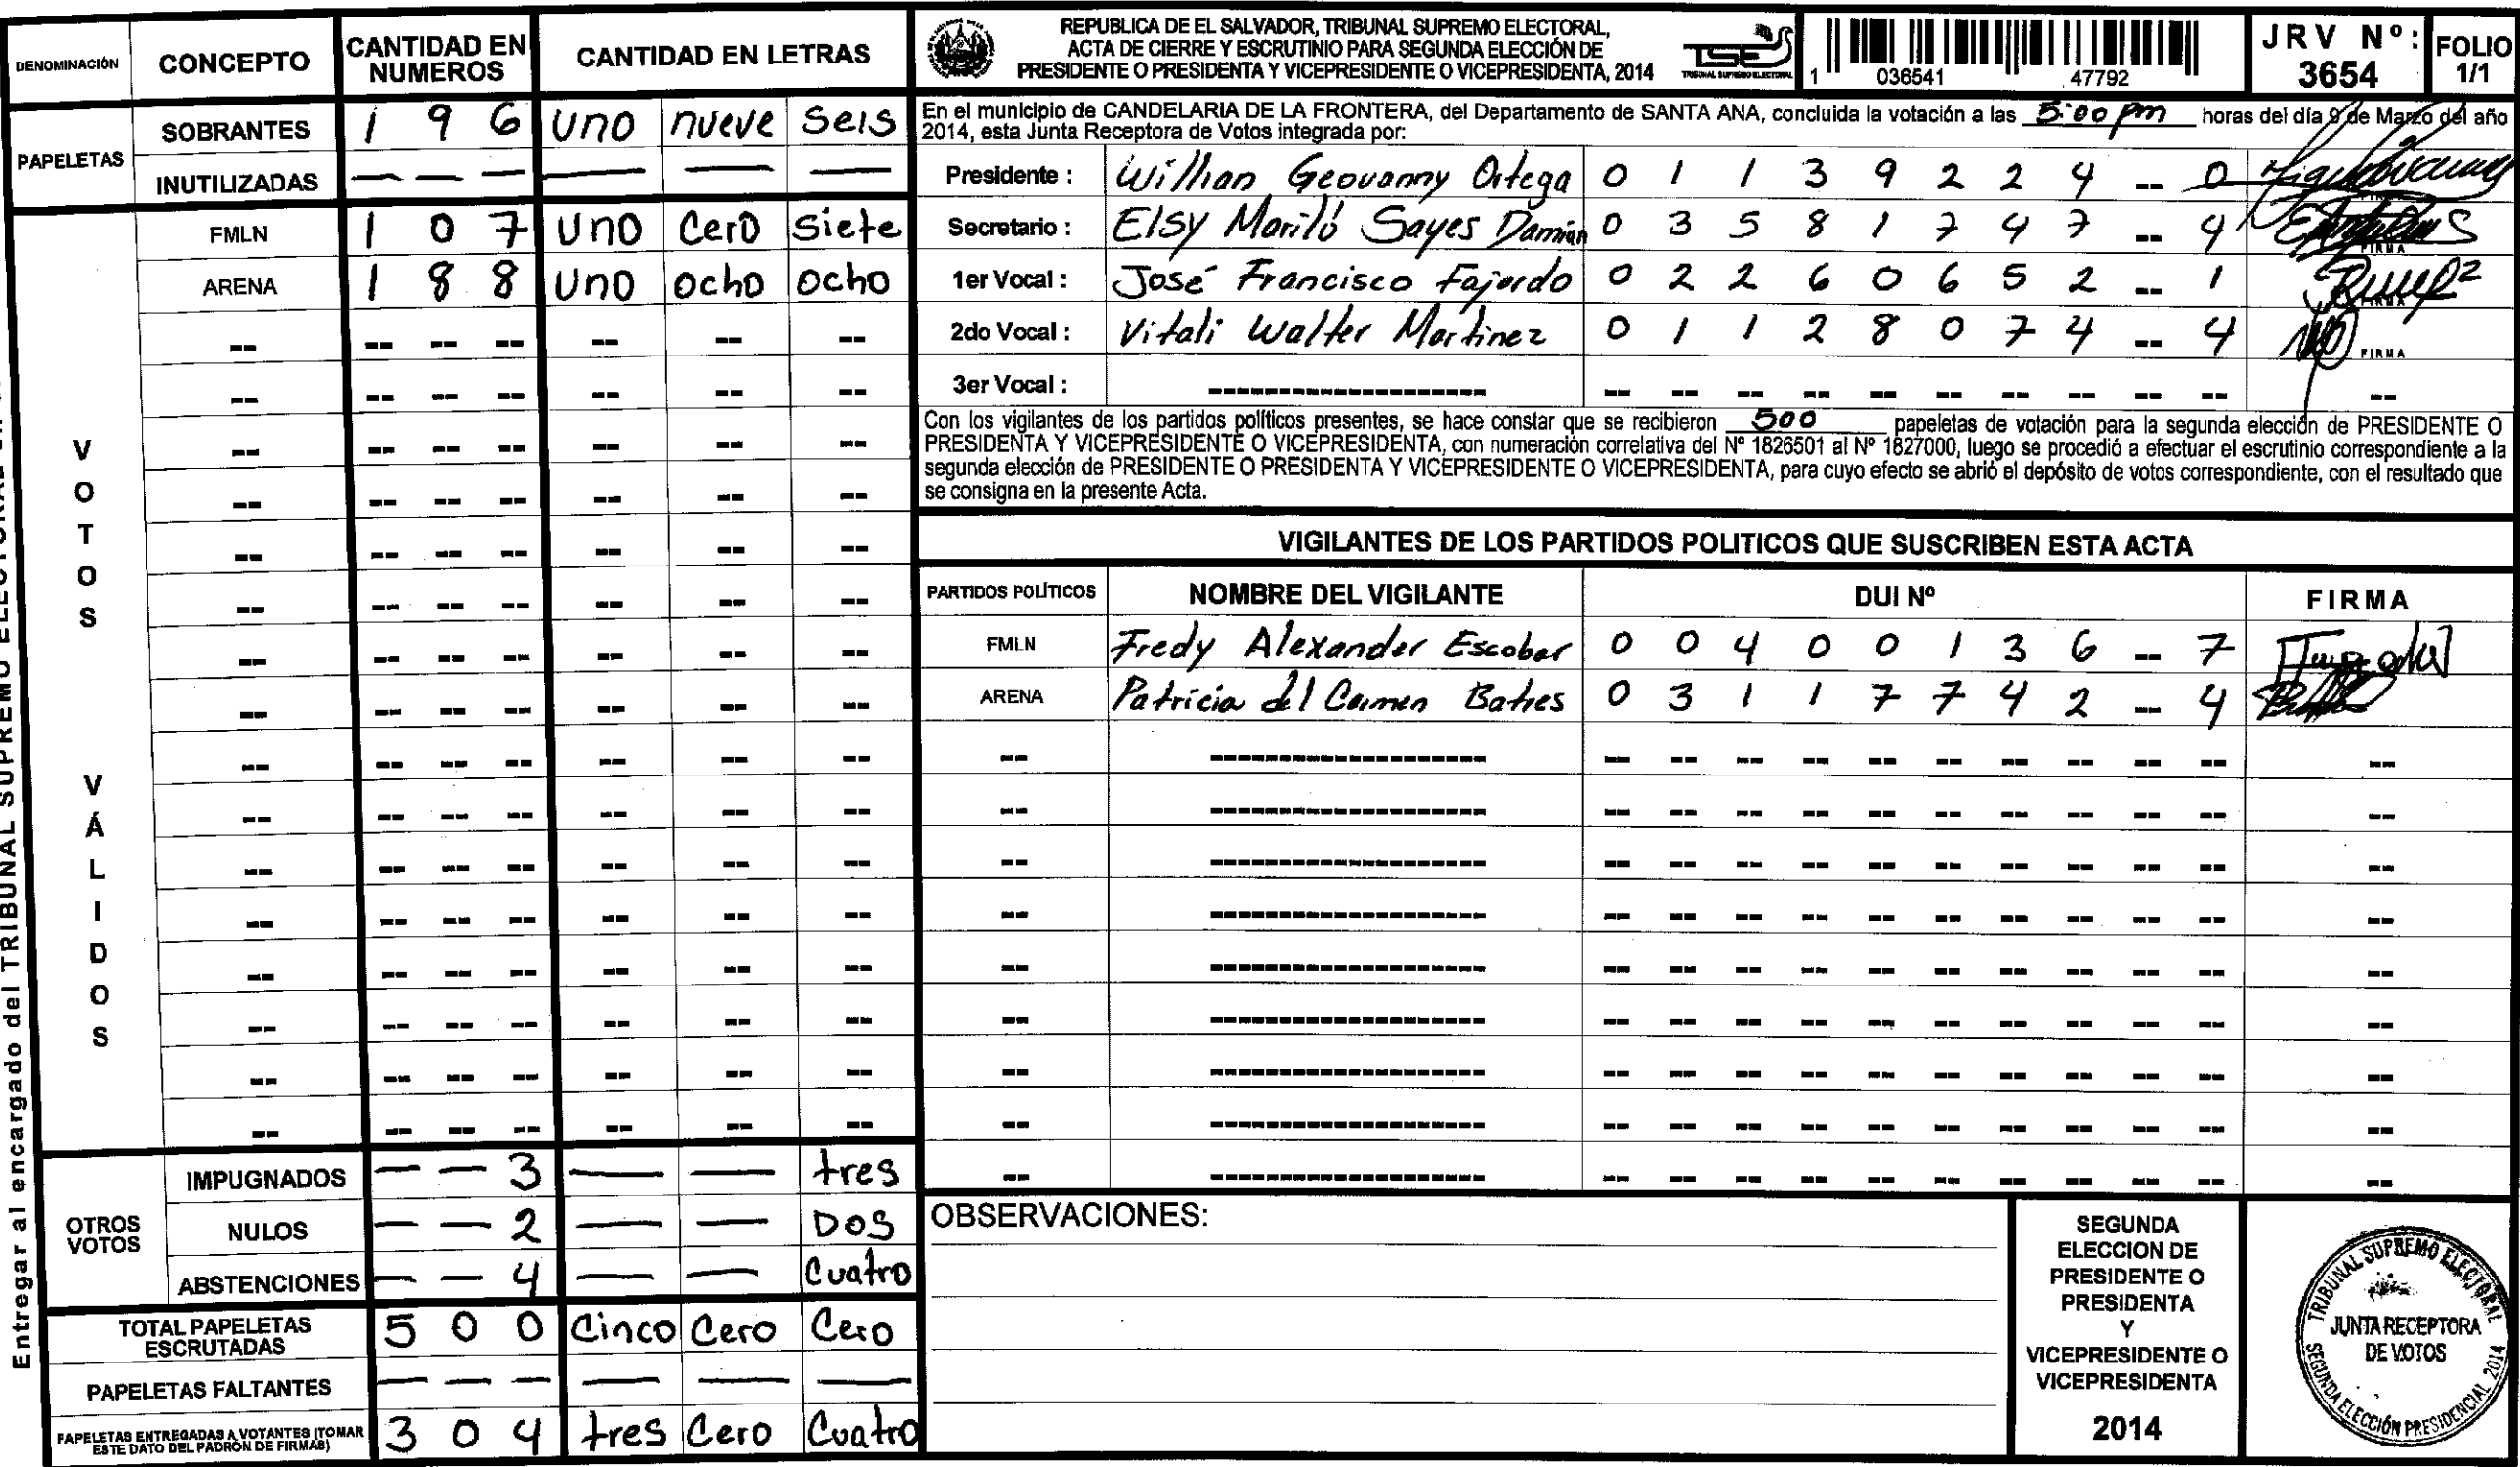 DENOMINACIÓN CONCEPTO CANTIDAD EN NUMEROS CANTIDAD EN LETRAS
PAPELETAS
SOBRANTES 1 9 6 uno nueve seis
INUTILIZADAS — — — — — —
VOTOS VÁLIDOS
FMLN 1 0 7 uno cero siete
ARENA 1 8 8 uno ocho ocho
OTROS VOTOS
IMPUGNADOS — — 3 — — tres
NULOS — — 2 — — DOS
ABSTENCIONES — — 4 — — Cuatro
TOTAL PAPELETAS ESCRUTADAS 5 0 0 Cinco Cero Cero
PAPELETAS FALTANTES — — — — — —
PAPELETAS ENTREGADAS A VOTANTES (TOMAR ESTE DATO DEL PADRÓN DE FIRMAS) 3 0 4 tres Cero Cuatro
Entregar al encargado del TRIBUNAL SUPREMO
REPUBLICA DE EL SALVADOR, TRIBUNAL SUPREMO ELECTORAL,
ACTA DE CIERRE Y ESCRUTINIO PARA SEGUNDA ELECCIÓN DE
PRESIDENTE O PRESIDENTA Y VICEPRESIDENTE O VICEPRESIDENTA, 2014
TSE
TRIBUNAL SUPREMO ELECTORAL
1 036541 47792
JRV Nº: 3654
FOLIO 1/1
En el municipio de CANDELARIA DE LA FRONTERA, del Departamento de SANTA ANA, concluida la votación a las 5:00 pm horas del día 9 de Marzo del año
2014, esta Junta Receptora de Votos integrada por:
Presidente : Willian Geovanny Ortega 0 1 1 3 9 2 2 4 -- 0
Secretario : Elsy Mariló Sayes Damián 0 3 5 8 1 7 4 7 -- 4 FIRMA
1er Vocal : José Francisco Fajardo 0 2 2 6 0 6 5 2 -- 1 FIRMA
2do Vocal : Vitali Walter Martinez 0 1 1 2 8 0 7 4 -- 4 FIRMA
3er Vocal : ------------------ -- -- -- -- -- -- -- -- -- -- --
Con los vigilantes de los partidos políticos presentes, se hace constar que se recibieron 500 papeletas de votación para la segunda elección de PRESIDENTE O
PRESIDENTA Y VICEPRESIDENTE O VICEPRESIDENTA, con numeración correlativa del Nº 1826501 al Nº 1827000, luego se procedió a efectuar el escrutinio correspondiente a la
segunda elección de PRESIDENTE O PRESIDENTA Y VICEPRESIDENTE O VICEPRESIDENTA, para cuyo efecto se abrió el depósito de votos correspondiente, con el resultado que
se consigna en la presente Acta.
VIGILANTES DE LOS PARTIDOS POLITICOS QUE SUSCRIBEN ESTA ACTA
PARTIDOS POLÍTICOS NOMBRE DEL VIGILANTE DUI Nº FIRMA
FMLN Fredy Alexander Escobar 0 0 4 0 0 1 3 6 -- 7
ARENA Patricia del Carmen Batres 0 3 1 1 7 7 4 2 -- 4
OBSERVACIONES:
SEGUNDA
ELECCION DE
PRESIDENTE O
PRESIDENTA
Y
VICEPRESIDENTE O
VICEPRESIDENTA
2014
TRIBUNAL SUPREMO ELECTORAL
JUNTA RECEPTORA
DE VOTOS
SEGUNDA ELECCIÓN PRESIDENCIAL 2014